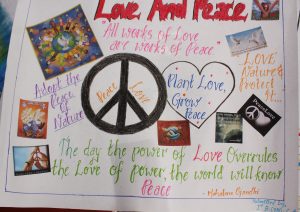 Love And Peace
"All works of Love
are works of Peace"
Adopt the
Peace of
Nature
Peace Love
Plant Love,
Grow
Peace
LOVE
Nature &
Protect
it...
The day the power of Love Overrules
the Love of power, the world will know
Peace
- Mahatma Gandhi